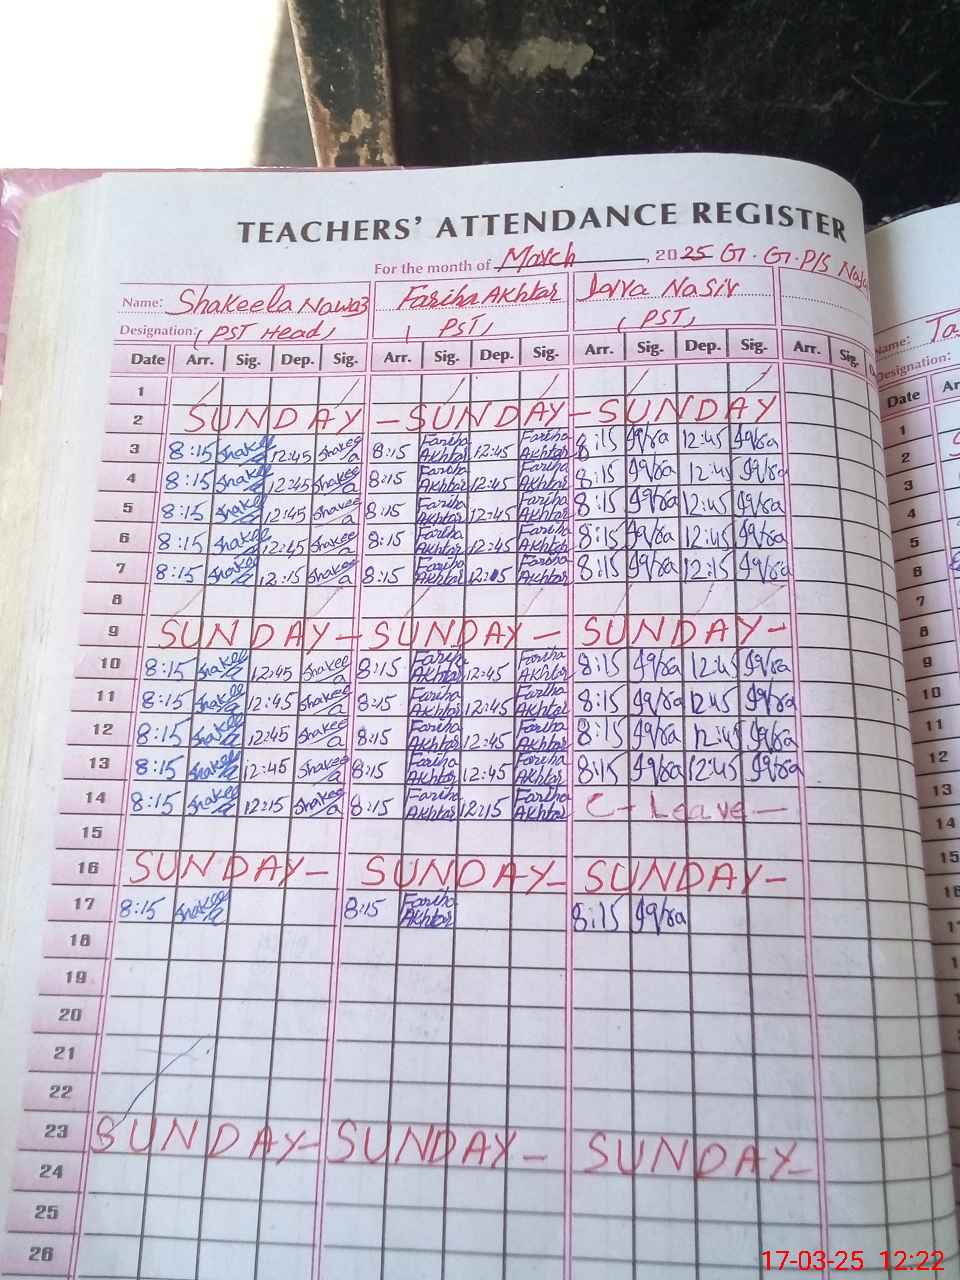 TEACHERS' ATTENDANCE REGISTER
For the month of March, 2025 G. G. P/S
Name: Shakeela Nawaz Fariha Akhtar Nasir
Designation: (PST Head) (PST) (PST)
Date Arr. Sig. Dep. Sig. Arr. Sig. Dep. Sig. Arr. Sig. Dep. Sig. Arr. Sig.
1
2 SUNDAY - SUNDAY - SUNDAY
3 8:15 Shakeela 12:45 Shakeela 8:15 Fariha Akhtar 12:45 Fariha Akhtar 8:15 Iqra 12:45 Iqra
4 8:15 Shakeela 12:45 Shakeela 8:15 Fariha Akhtar 12:45 Fariha Akhtar 8:15 Iqra 12:45 Iqra
5 8:15 Shakeela 12:45 Shakeela 8:15 Fariha Akhtar 12:45 Fariha Akhtar 8:15 Iqra 12:45 Iqra
6 8:15 Shakeela 12:45 Shakeela 8:15 Fariha Akhtar 12:45 Fariha Akhtar 8:15 Iqra 12:45 Iqra
7 8:15 Shakeela 12:15 Shakeela 8:15 Fariha Akhtar 12:15 Fariha Akhtar 8:15 Iqra 12:15 Iqra
8
9 SUNDAY - SUNDAY - SUNDAY -
10 8:15 Shakeela 12:45 Shakeela 8:15 Fariha Akhtar 12:45 Fariha Akhtar 8:15 Iqra 12:45 Iqra
11 8:15 Shakeela 12:45 Shakeela 8:15 Fariha Akhtar 12:45 Fariha Akhtar 8:15 Iqra 12:45 Iqra
12 8:15 Shakeela 12:45 Shakeela 8:15 Fariha Akhtar 12:45 Fariha Akhtar 8:15 Iqra 12:45 Iqra
13 8:15 Shakeela 12:45 Shakeela 8:15 Fariha Akhtar 12:45 Fariha Akhtar 8:15 Iqra 12:45 Iqra
14 8:15 Shakeela 12:15 Shakeela 8:15 Fariha Akhtar 12:15 Fariha Akhtar C - Leave -
15
16 SUNDAY - SUNDAY - SUNDAY -
17 8:15 Shakeela 8:15 Fariha Akhtar 8:15 Iqra
18
19
20
21
22
23 SUNDAY - SUNDAY - SUNDAY -
24
25
26
Name:
Designation:
Date
1
2
3
4
5
6
7
8
9
10
11
12
13
14
15
17-03-25 12:22